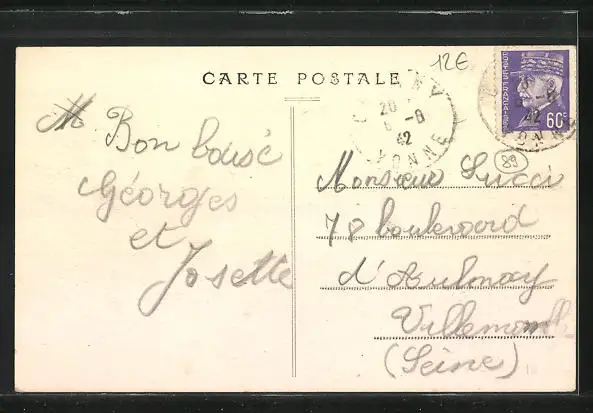 12€
CARTE POSTALE
20
6-8
42
YONNE
60c
42
89
Bon baisé
Géorges
et
Josette
Monsieur Lucci
78 boulevard
d'Aulnay
Villemomble
(Seine)